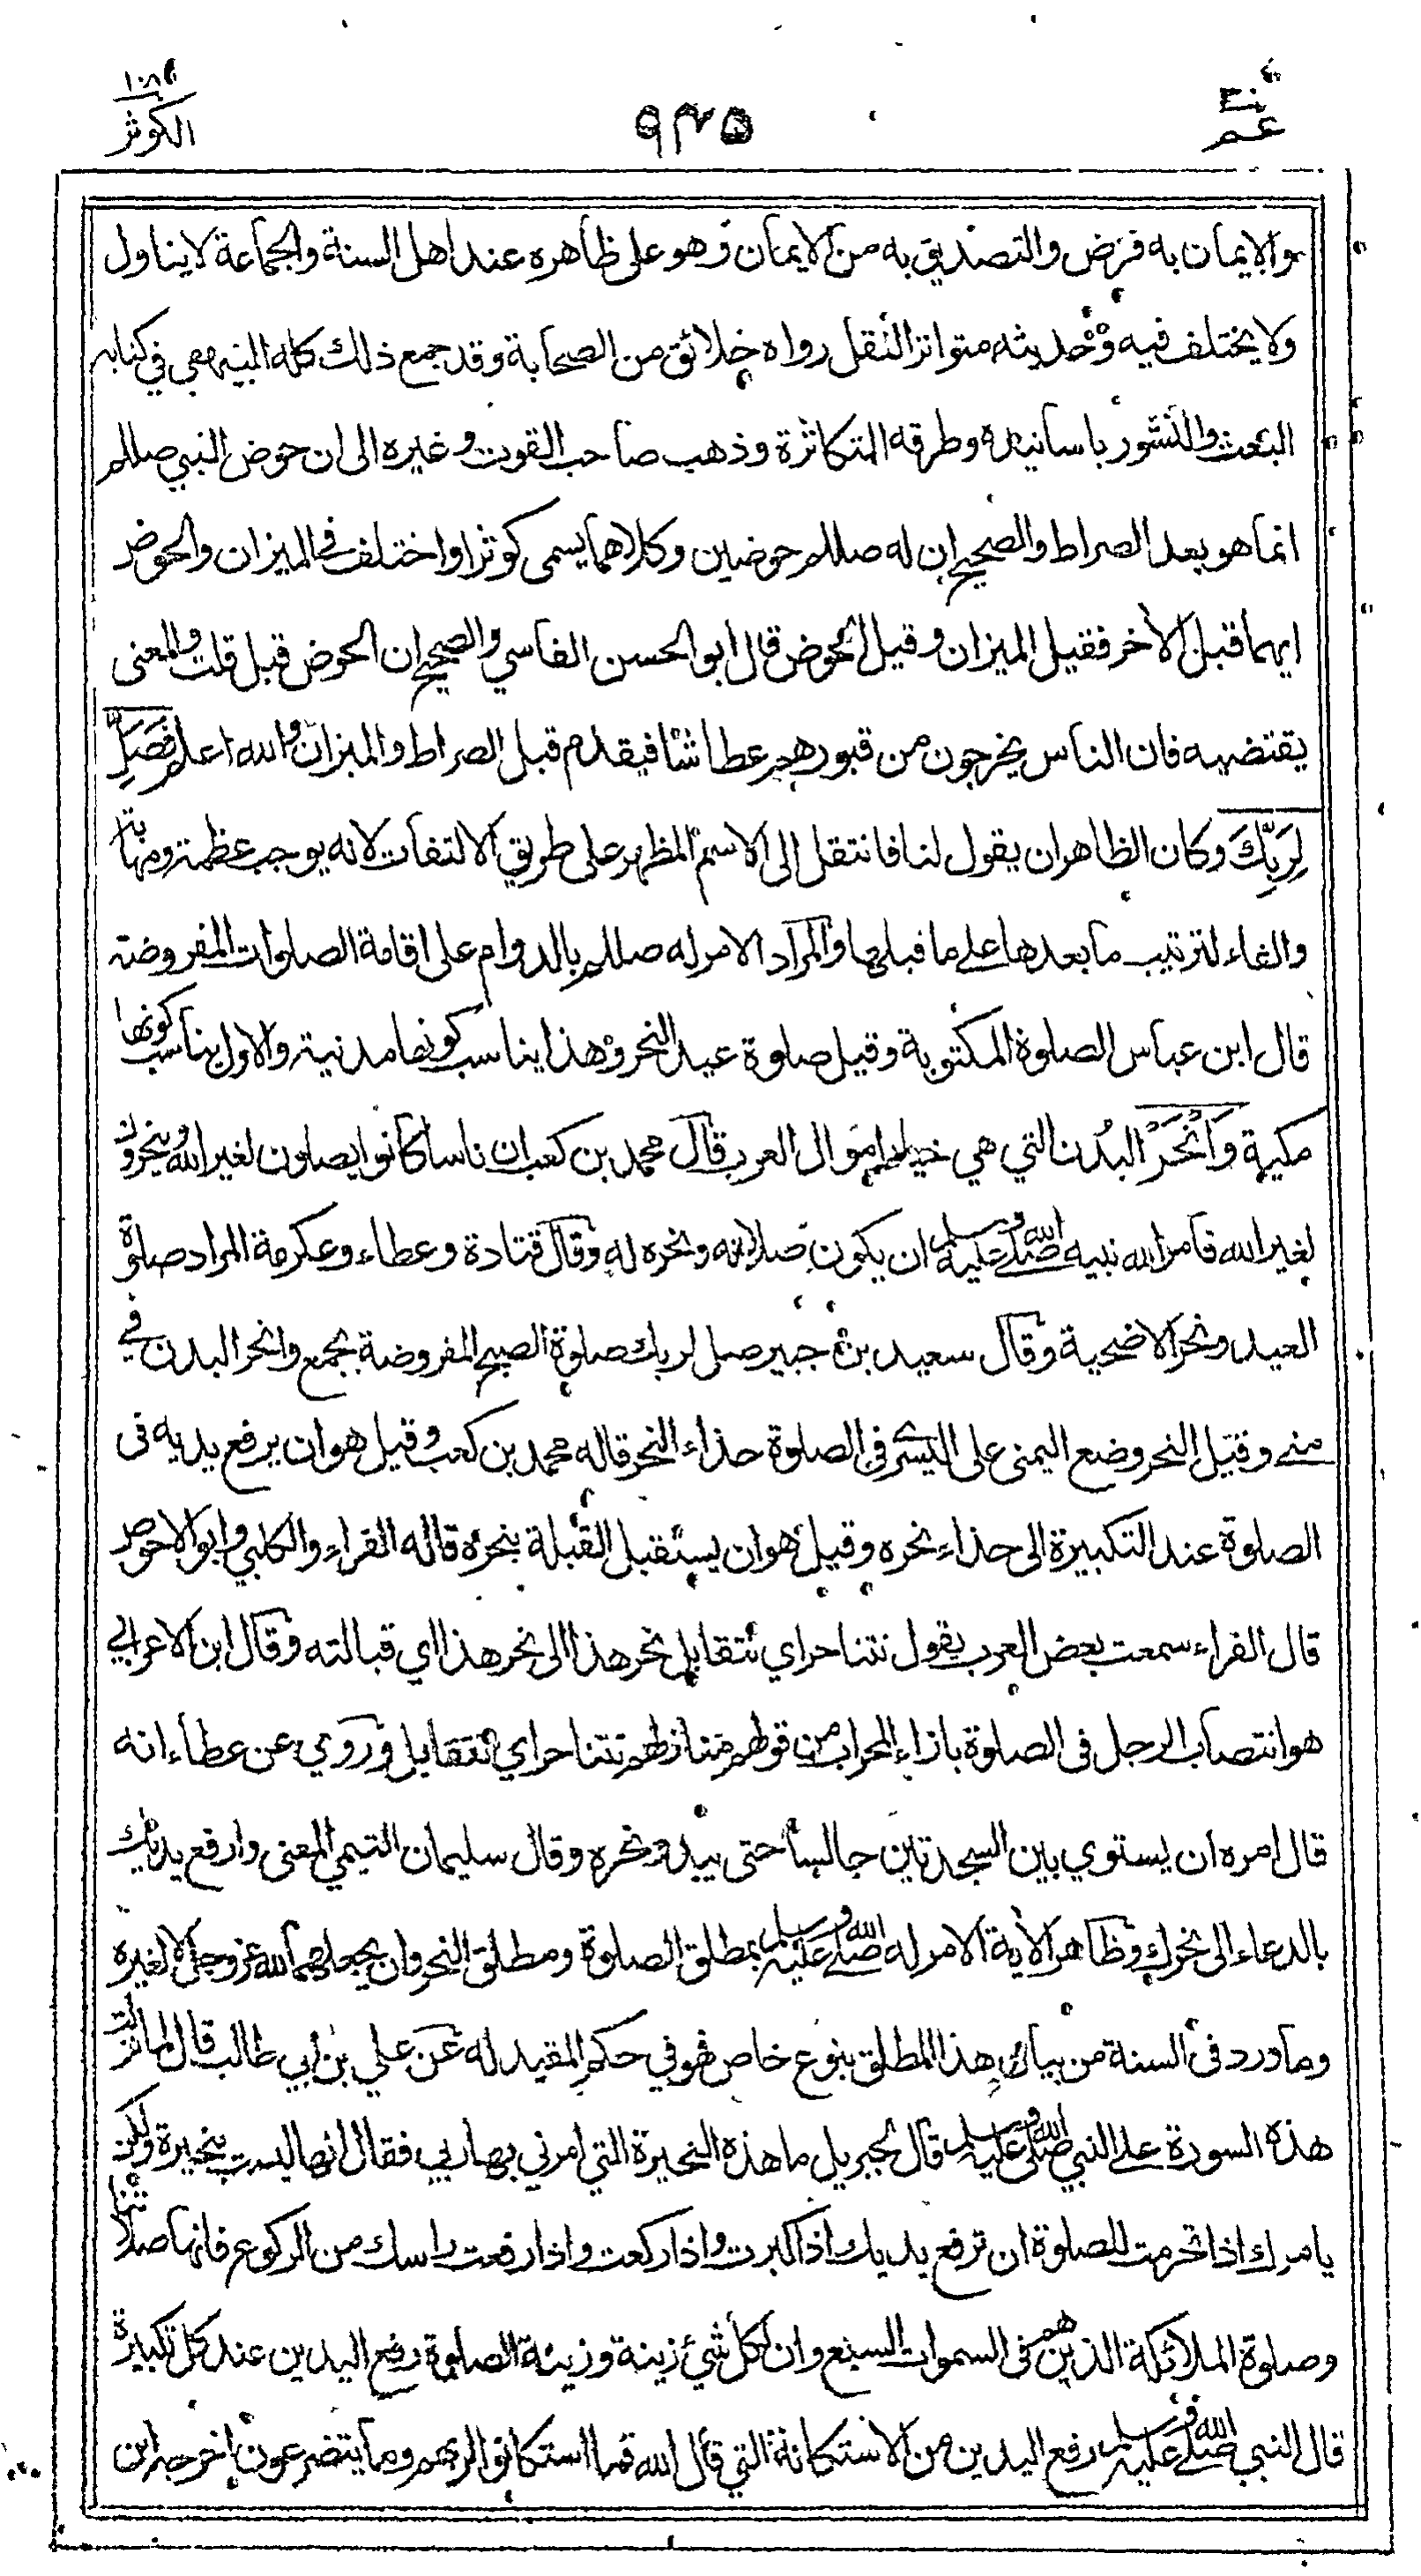 عم ٣٠
٩٣٥
١٠٨
الكوثر
والإيمان به فرض والتصديق به من الايمان وهو على ظاهره عند اهل السنة والجماعة لا يتاول
ولا يختلف فيه وحديثه متواتر النقل رواه خلائق من الصحابة وقد جمع ذلك كله البيهقي في كتابه
البعث والنشور باسانيده وطرقه المتكاثرة وذهب صاحب القوت وغيره الى ان حوض النبي صللم
انما هو بعد الصراط والصحيح ان له صللم حوضين وكلاهما يسمى كوثرا واختلف في الميزان والحوض
ايهما قبل الأخر فقيل الميزان وقيل الحوض قال ابو الحسن الفاسي والصحيح ان الحوض قبل قلت والمعنى
يقتضيه فان الناس يخرجون من قبورهم عطاشا فيقدم قبل الصراط والميزان والله اعلم فَصَلِّ
لِرَبِّكَ وكان الظاهر ان يقول لنا فانتقل الى الاسم المظهر على طريق الالتفات لانه يوجب عظمة ومهابة
والفاء لترتيب ما بعدها على ما قبلها والمراد الامر له صللم بالدوام على اقامة الصلوات المفروضة
قال ابن عباس الصلوة المكتوبة وقيل صلوة عيد النحر وهذا يناسب كونها مدنية والاول يناسب كونها
مكية وَانْحَرْ البُدن التي هي خيار اموال العرب قال محمد بن كعب ان ناسا كانوا يصلون لغير الله وينحرون
لغير الله فأمر الله نبيه صلى الله عليه وسلم ان يكون صلاته ونحره له وقال قتادة وعطاء وعكرمة المراد صلوة
العيد ونحر الاضحية وقال سعيد بن جبير صل لربك صلوة الصبح المفروضة بجمع وانحر البدن في
منى وقيل النحر وضع اليمنى على اليسرى في الصلوة حذاء النحر قاله محمد بن كعب وقيل هو ان يرفع يديه في
الصلوة عند التكبيرة الى حذاء نحره وقيل هو ان يستقبل القبلة بنحره قاله الفراء والكلبي وابو الاحوص
قال الفراء سمعت بعض العرب يقول نتناحر اي نتقابل نحر هذا الى نحر هذا اي قبالته وقال ابن الاعرابي
هو انتصاب الرجل في الصلوة بازاء المحراب من قولهم منازلهم تتناحر اي تتقابل وروي عن عطاء انه
قال امره ان يستوي بين السجدتين جالسا حتى يبدو نحره وقال سليمان التيمي المعنى وارفع يديك
بالدعاء الى نحرك وظاهر الآية الامر له صلى الله عليه وسلم بمطلق الصلوة ومطلق النحر وان يجعلهما لله عز وجل لا لغيره
وما ورد في السنة من بيان هذا المطلق بنوع خاص فهو في حكم المقيد له عن علي بن ابي طالب قال لما نزلت
هذه السورة على النبي صلى الله عليه وسلم قال لجبريل ما هذه النحيرة التي امرني بها ربي فقال انها ليست بنحيرة ولكن
يامرك اذا تحرمت للصلوة ان ترفع يديك اذا كبرت واذا ركعت واذا رفعت راسك من الركوع فانها صلاتنا
وصلوة الملائكة الذين هم في السموات السبع وان لكل شيء زينة وزينة الصلوة رفع اليدين عند كل تكبيرة
قال النبي صلى الله عليه وسلم رفع اليدين من الاستكانة التي قال الله فما استكانوا لربهم وما يتضرعون اخرجه ابن